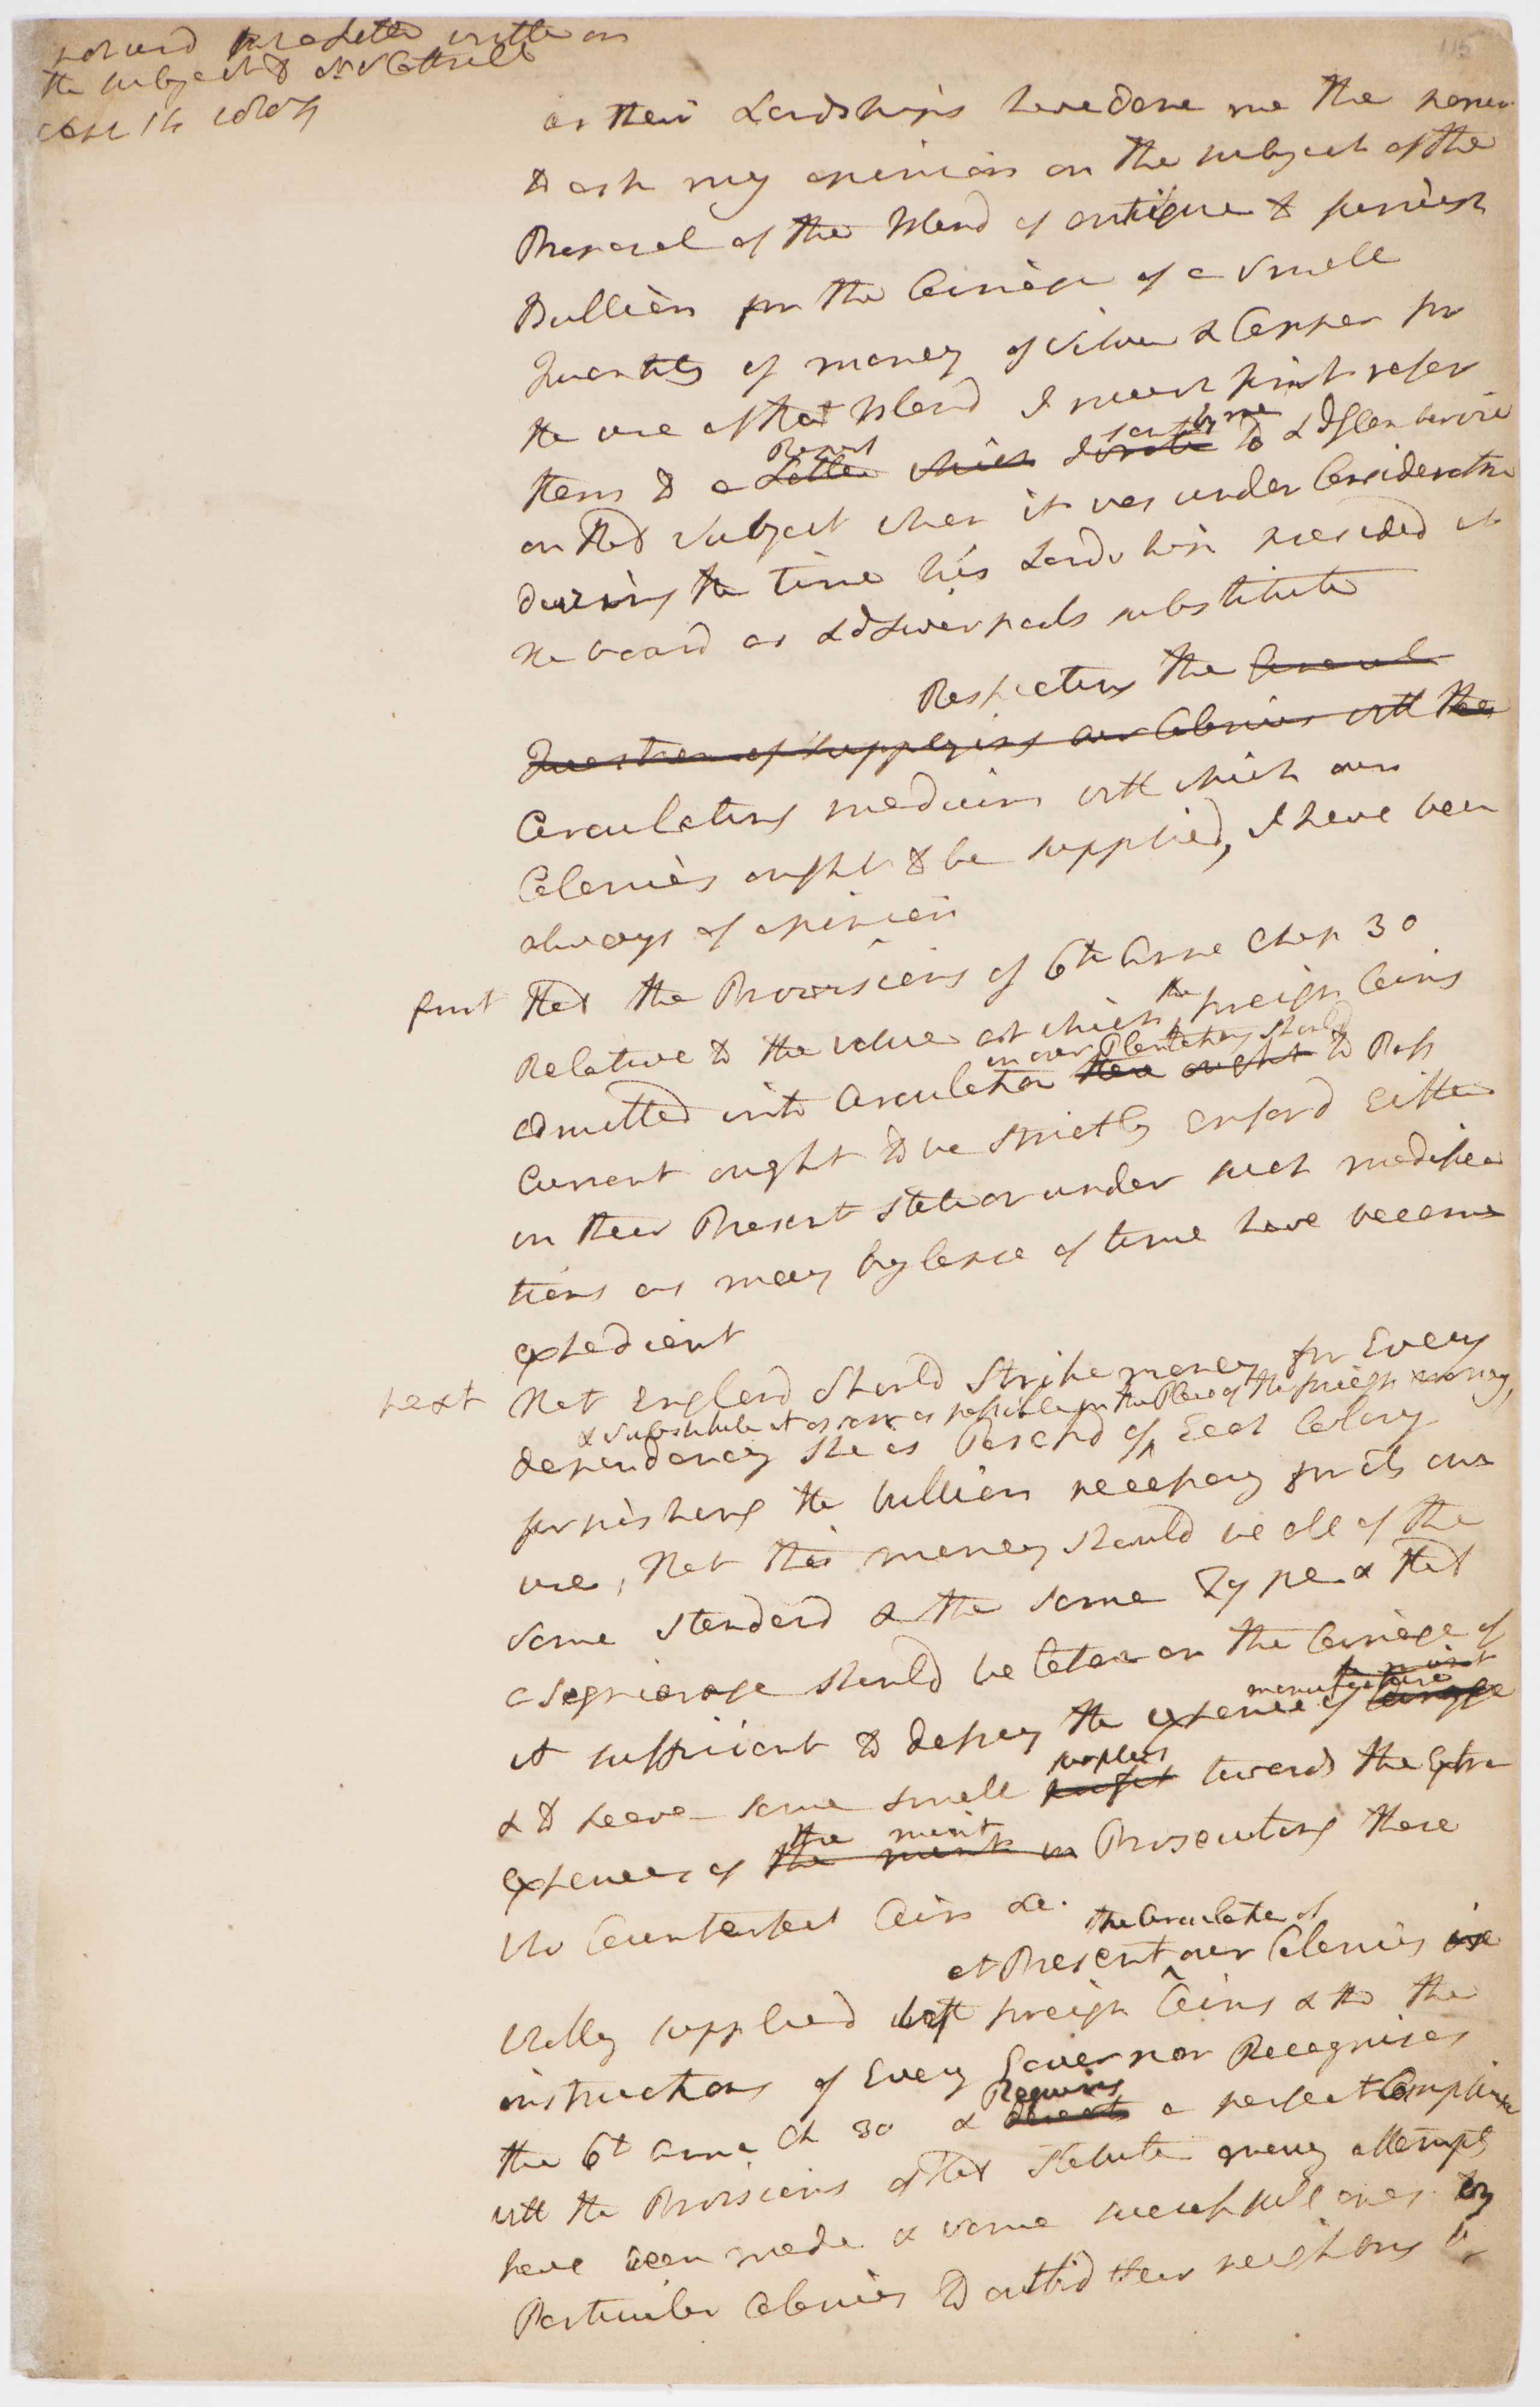 the subject to Mr Cottrell
115
as their Lordships have done me the honor
to ask my opinion on the subject of the
Proposal of the Island of antigua to furnish
Bullion for the Coinage of a Small
Quantity of money of Silver & Copper for
the use of that Island I must first refer
them to a Letter which I wrote Report sent by me to Ld Glenbervie
on that Subject when it was under Consideration
during the time his Lordship presided at
the board as Ld Liverpools substitute
Respecting the
Question of supplying our Colonies with the
Circulating medium with which our
Colonies ought to be supplied, I have been
always of opinion
first That the Provisions of 6th Anne Chap 30
Relative to the value at which the foreign Coins
in our Plantations should
admitted into Circulation there ought to Pass
Current ought to be strictly enforcd Either
in their Present State or under such modifica
tions as may by lapse of time have become
expedient
next That England Should Strike money for Every
& substitute it as soon as possible in the Place of the foreign money,
dependency She is Possessd of Each Colony
furnishing the bullion necessary for its own
use, That this money should be all of the
same Standard & the same Type & that
a Segniorage should be taken on the Coinage of
manufacture
it sufficient to defray the expence of Coinage
surplus
& to leave some small profit towards the Extra
the mint
expences of the mint in Prosecuting those
who Counterfeit Coin &c.
the Circulation of
at Present our Colonies is
wholly supplied with foreign Coins & tho the
instructions of Every Governor Recognises
Requires
the 6th Anne Ch 30 & a perfect Compliance
with the Provisions of that Statute many attempts
have been made & some successfull ones by
Particular Colonies to outbid their neighbors